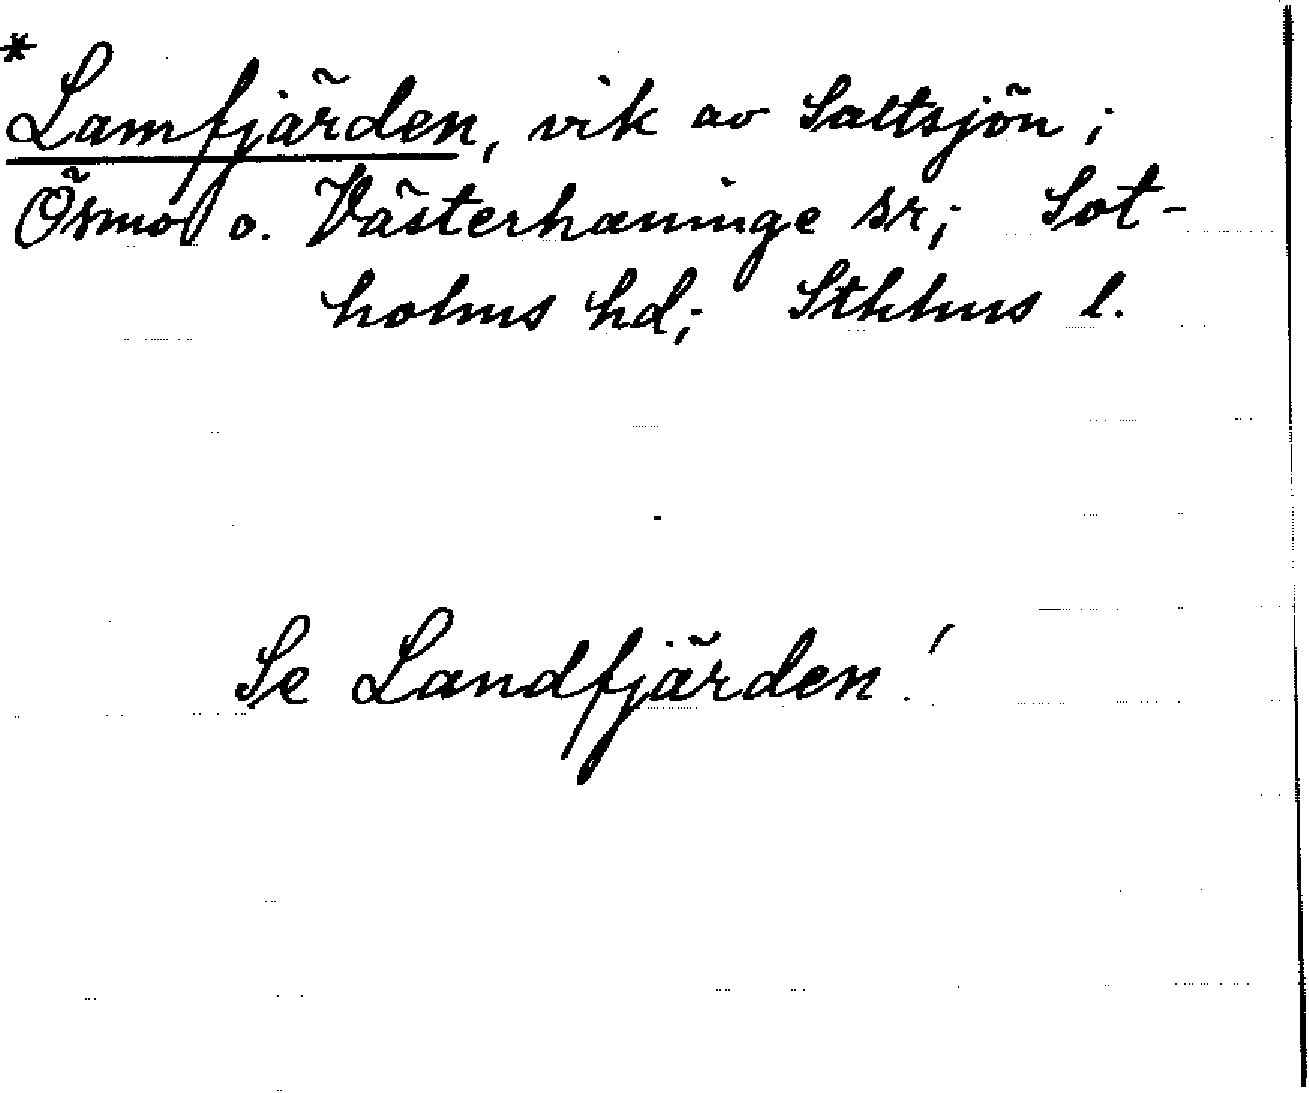 * Lamfjärden, vik av Saltsjön;
Ösmo o. Västerhaninge sr; Sot-
holms hd; Sthlms l.
Se Landfjärden!